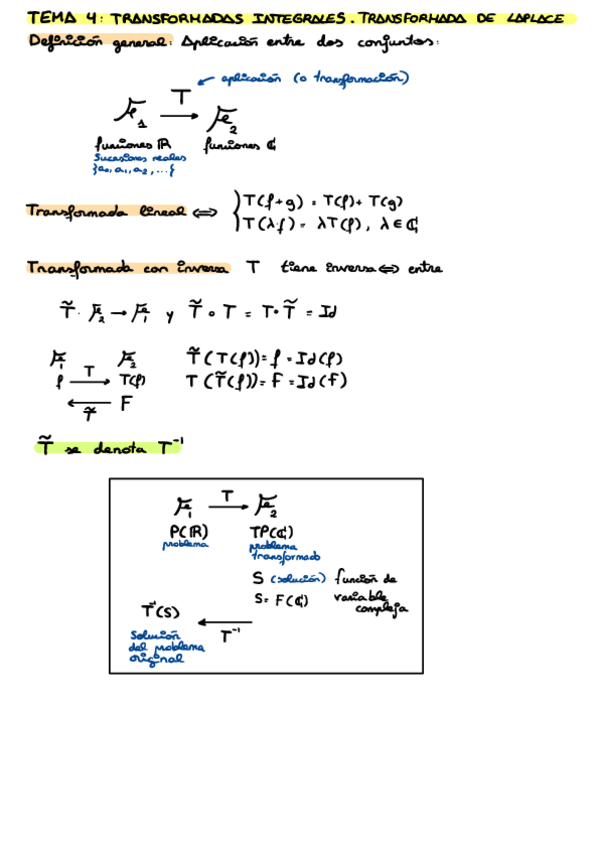 TEMA 4: TRANSFORMADAS INTEGRALES. TRANSFORMADA DE LAPLACE
Definición general: Aplicación entre dos conjuntos:
aplicación (o transformación)
T
F₁ → F₂
funciones ℝ funciones ℂ
Sucesiones reales
{a₀, a₁, a₂, ...}
Transformada lineal ⟺ { T(f+g) = T(f) + T(g)
T(λ·f) = λT(f), λ ∈ ℂ
Transformada con inversa T tiene inversa ⟺ entre
T̃: F₂ → F₁ y T̃ ∘ T = T∘T̃ = Id
F₁ F₂ T̃(T(f)) = f = Id(f)
f T→ T(f) T(T̃(F)) = F = Id(F)
← F
T̃
T̃ se denota T⁻¹
F₁ T→ F₂
P(ℝ) TP(ℂ)
problema problema
transformado
S (solución) función de
S = F(ℂ) variable
compleja
T⁻¹(S) ←
T⁻¹
Solución
del problema
original